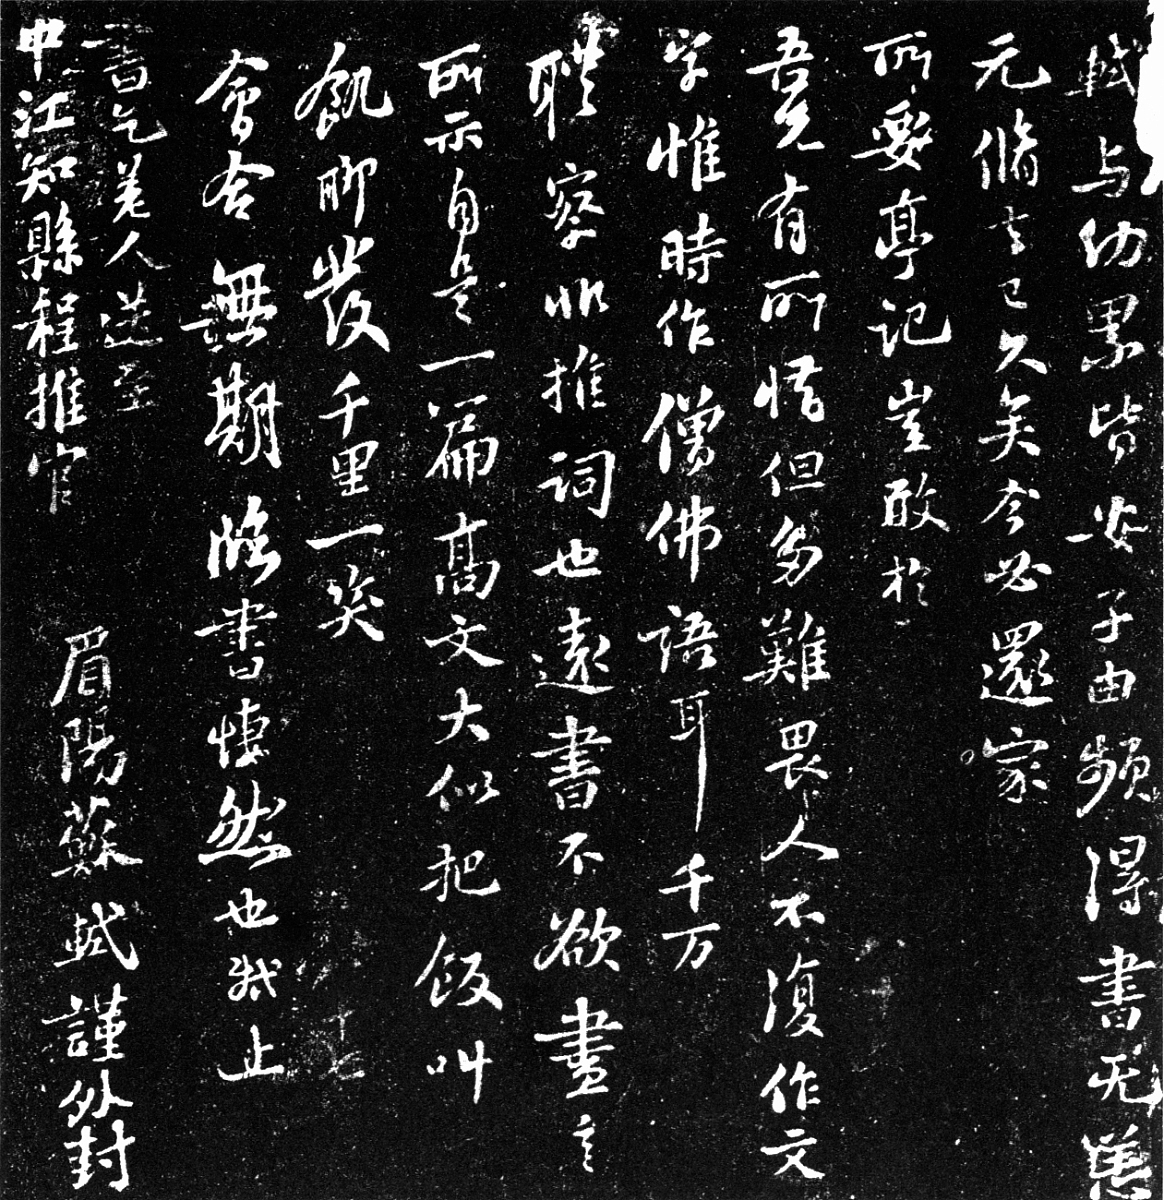 軾与幼累皆安子由頻得書无恙
元脩去已久矣今必還家
所要亭记豈敢於
吾兄有所惜但多難畏人不復作文
字惟時作僧佛語耳千万
體察非推詞也遠書不欲盡言
所示自是一篇高文大似把飯叫
飢聊發千里一笑
會合無期臨書悽然也軾止
書乞差人送至
中江知縣程推官
眉陽蘇軾謹外封